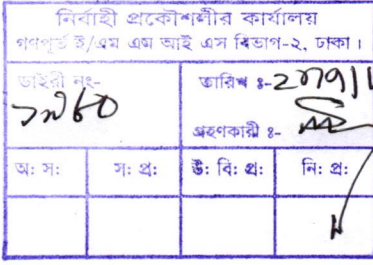 নির্বাহী প্রকৌশলীর কার্যালয়
গণপূর্ত ই/এম এম আই এস বিভাগ-২, ঢাকা।
ডাইরী নং-
তারিখ ঃ-
গ্রহণকারী ঃ-
অ: স: স: প্র: উ: বি: প্র: নি: প্র: